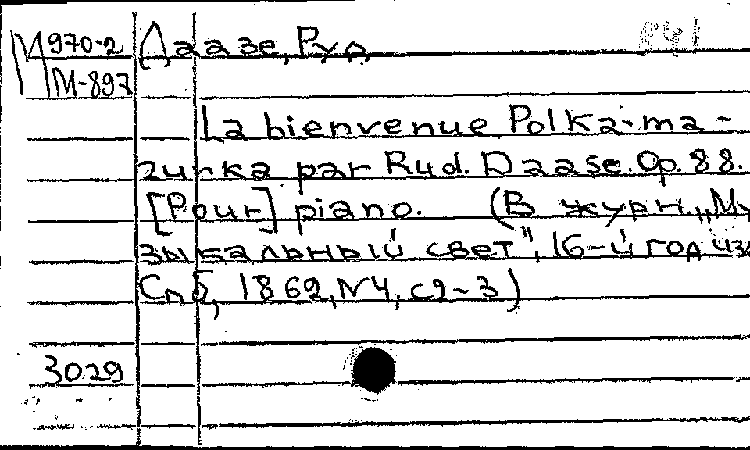 М970-2 Даазе, Руд
М-897
La bienvenue Polka-ma-
zurka par Rud. Daase. Op. 88.
[Pour] piano. (В журн. „Му
зыкальный свет", 16-й год из
Спб, 1862, N4, с2-3)
3029